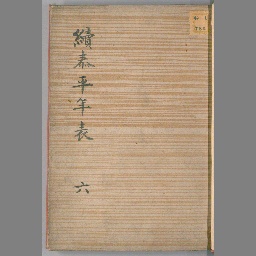 續泰平年表 六